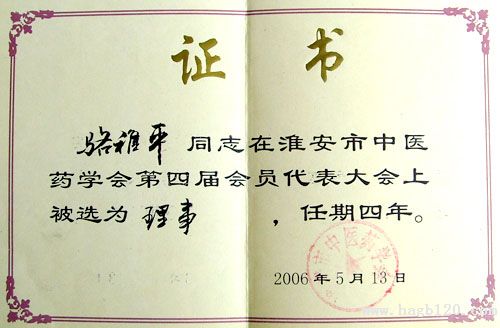 证 书
骆雅平 同志在淮安市中医
药学会第四届会员代表大会上
被选为 理事 ，任期四年。
2006年5月13日
www.hagb120.com